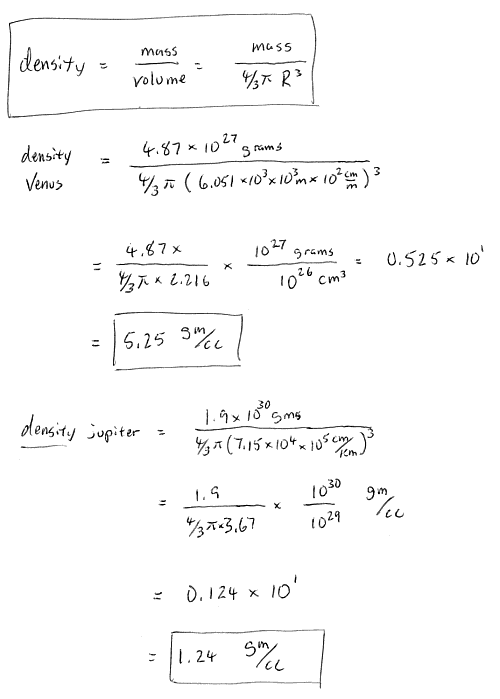 density = mass / volume = mass / 4/3 π R³
density Venus = 4.87 × 10²⁷ grams / 4/3 π ( 6.051 × 10³ × 10³ m × 10² cm/m )³
= 4.87 × / 4/3 π × 2.216 × 10²⁷ grams / 10²⁶ cm³ = 0.525 × 10¹
= 5.25 gm/cc
density jupiter = 1.9 × 10³⁰ gms / 4/3 π ( 7.15 × 10⁴ × 10⁵ cm/km )³
= 1.9 / 4/3 π × 3.67 × 10³⁰ / 10²⁹ gm/cc
= 0.124 × 10¹
= 1.24 gm/cc